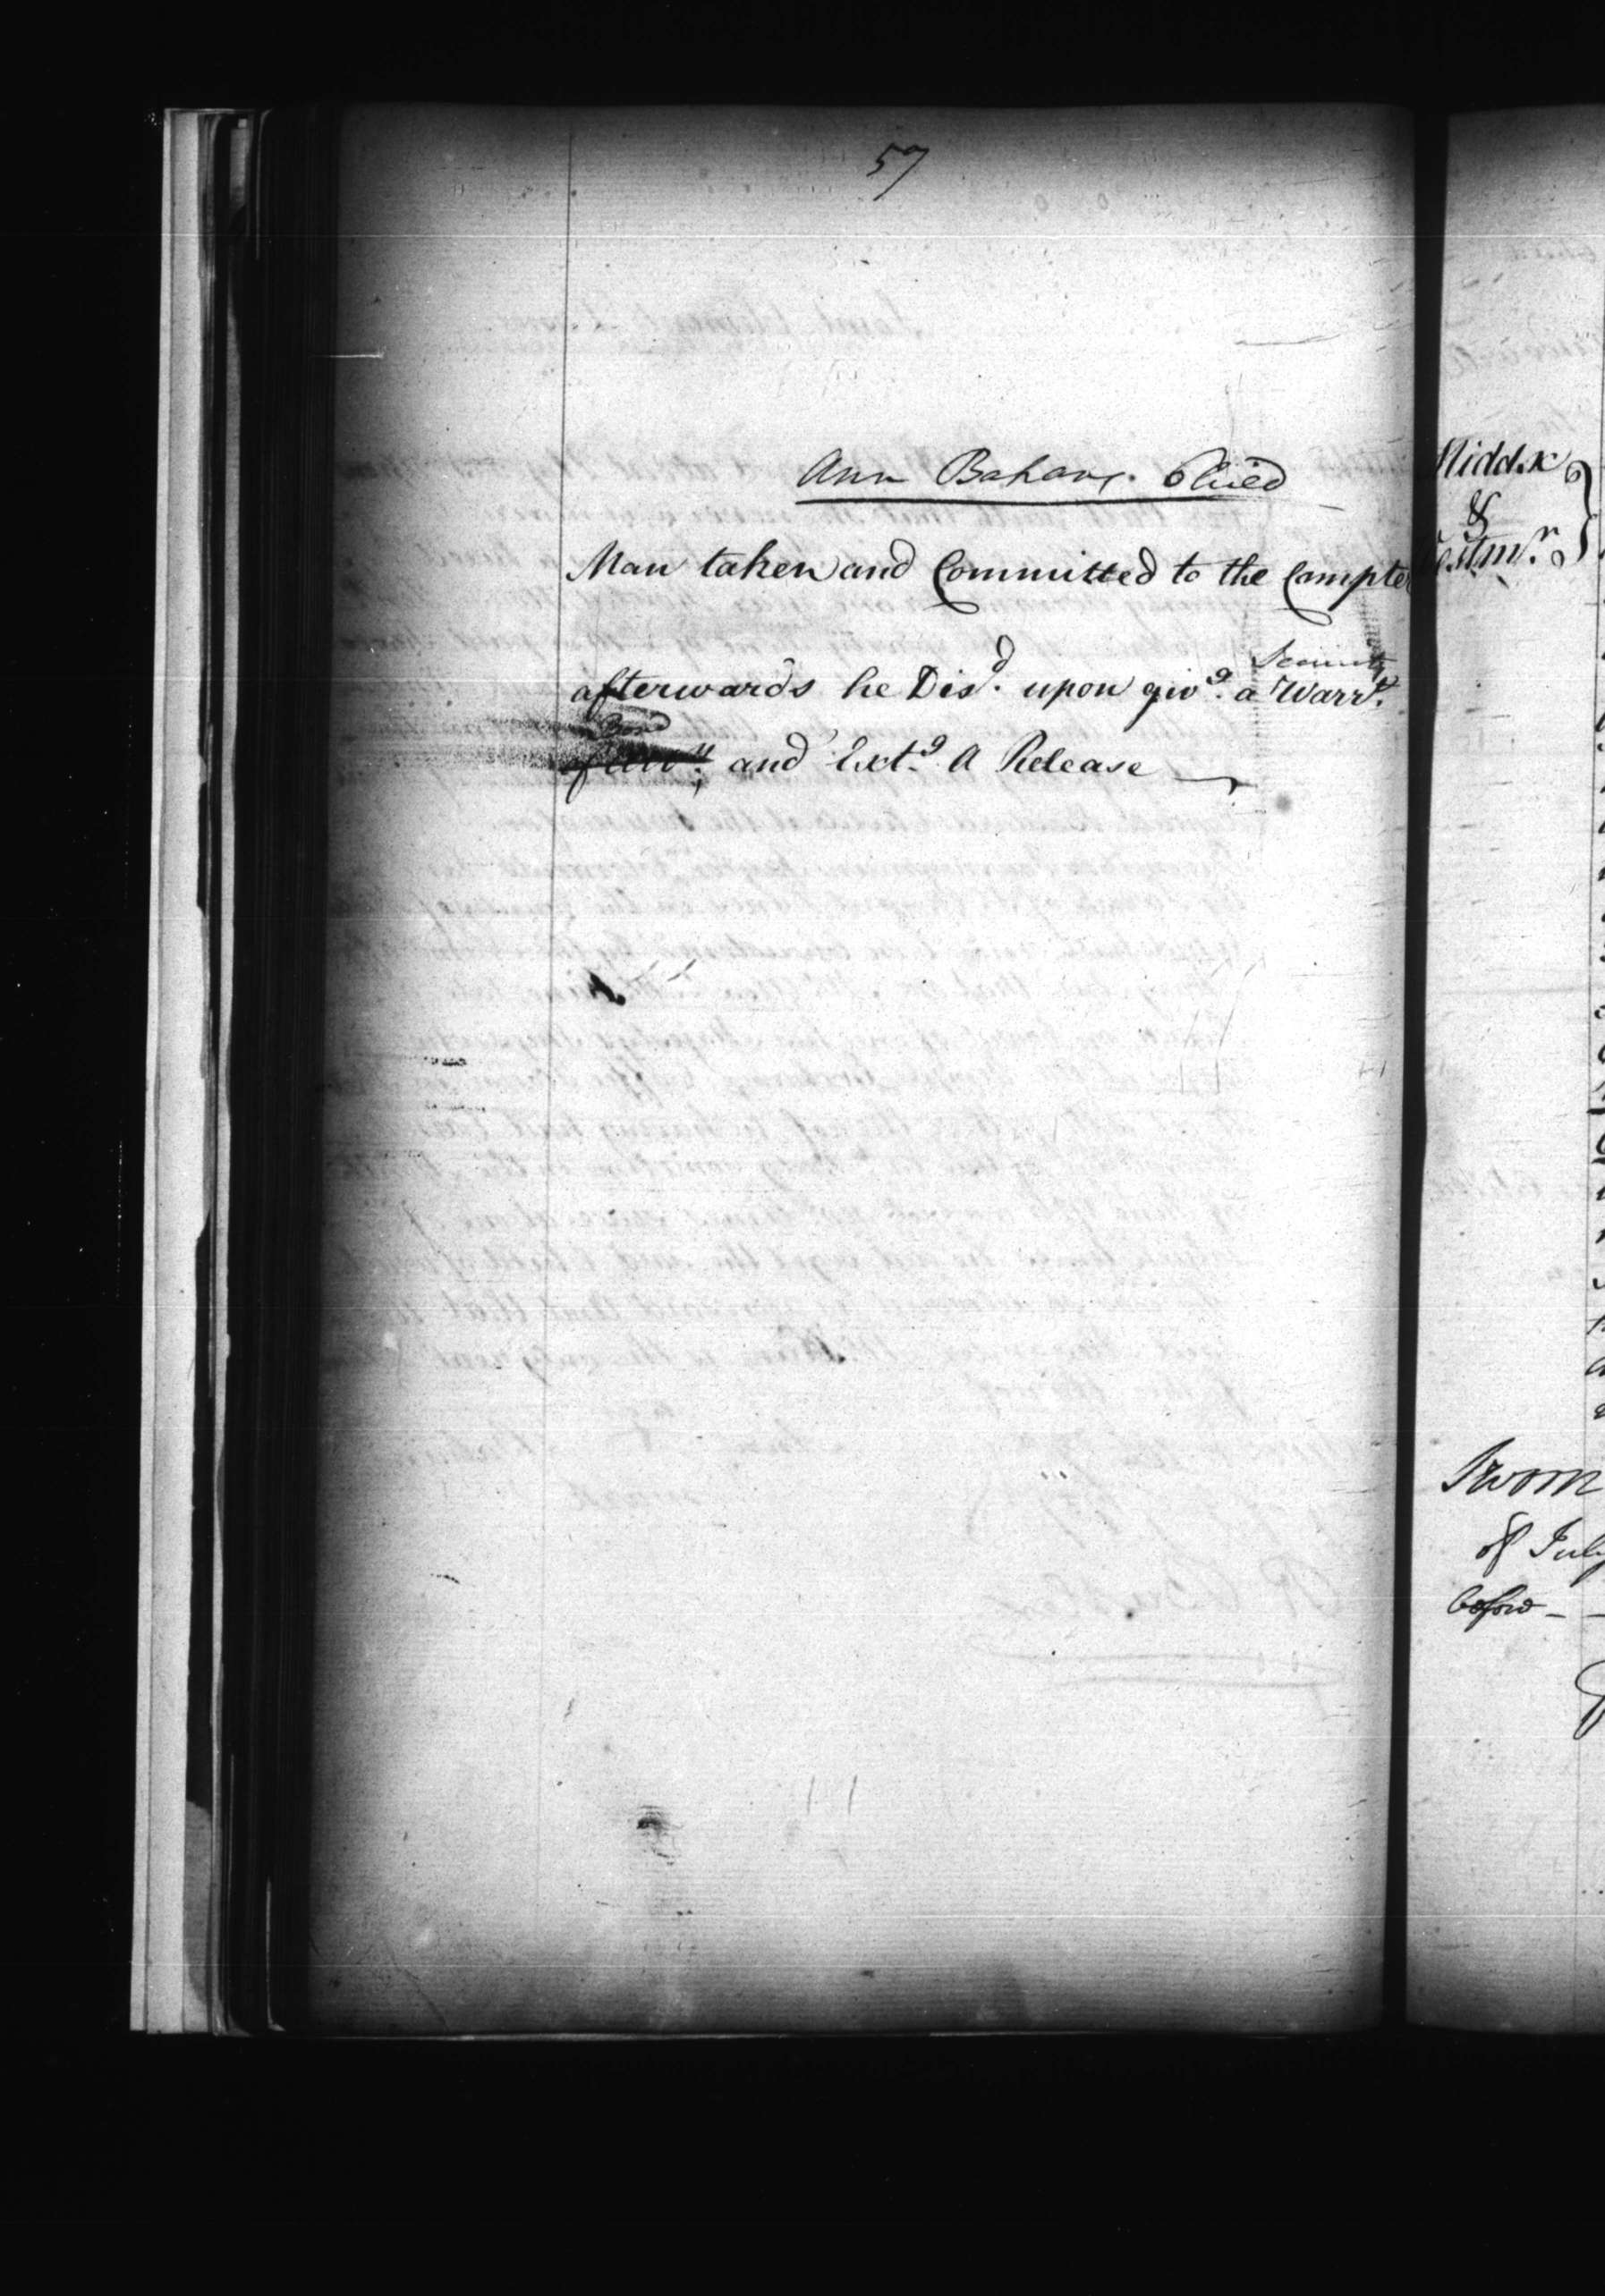 57
Ann Bakans. Child
Man taken and Committed to the Compter
afterwards he Disd. upon givg. a Security Warrt.
and Extg. A Release
Midd.x
&
Westmr.
Sworn
of July
before